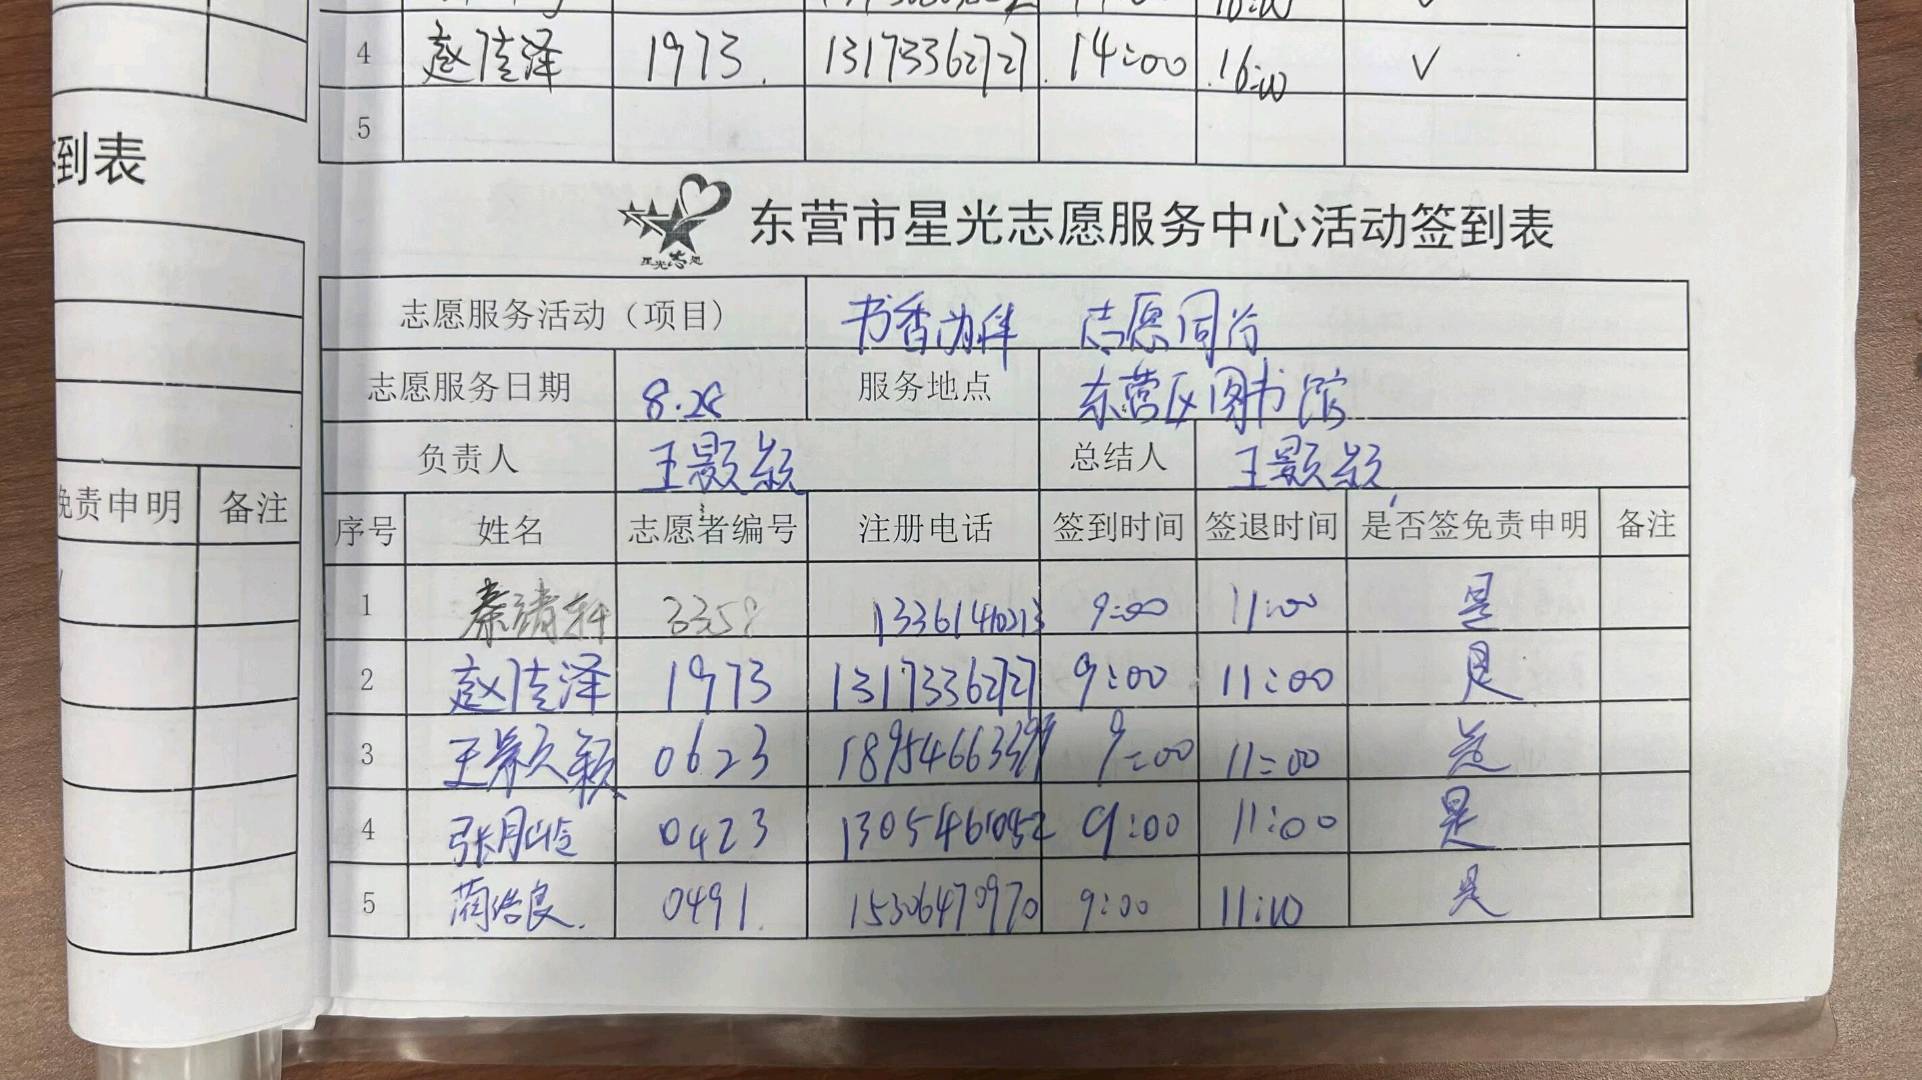 4 赵佳泽 1973. 13173362727 14:00 16:00 √
5
到表
东营市星光志愿服务中心活动签到表
星光志愿
志愿服务活动（项目） 书香为伴 志愿同行
志愿服务日期 8.28 服务地点 东营区图书馆
负责人 王颢颖 总结人 王颢颖
免责申明 备注
序号 姓名 志愿者编号 注册电话 签到时间 签退时间 是否签免责申明 备注
1 秦靖轩 3359 13361410213 9:00 11:00 是
2 赵佳泽 1973 13173362727 9:00 11:00 是
3 0623 9:00 11:00 是
4 张月玲 0423 9:00 11:00 是
5 0491. 15306470970 9:00 11:00 是